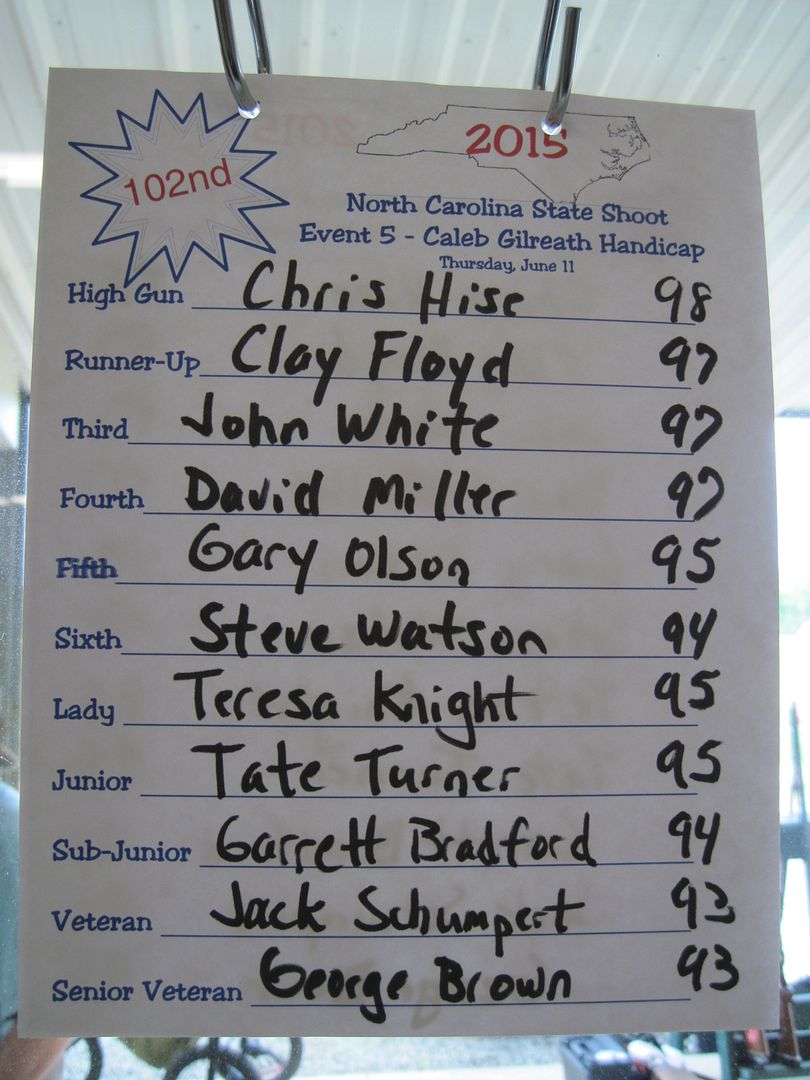 102nd
2015
North Carolina State Shoot
Event 5 - Caleb Gilreath Handicap
Thursday, June 11
High Gun Chris Hise 98
Runner-Up Clay Floyd 97
Third John White 97
Fourth David Miller 97
Fifth Gary Olson 95
Sixth Steve Watson 94
Lady Teresa Knight 95
Junior Tate Turner 95
Sub-Junior Garrett Bradford 94
Veteran Jack Schumpert 93
Senior Veteran George Brown 93